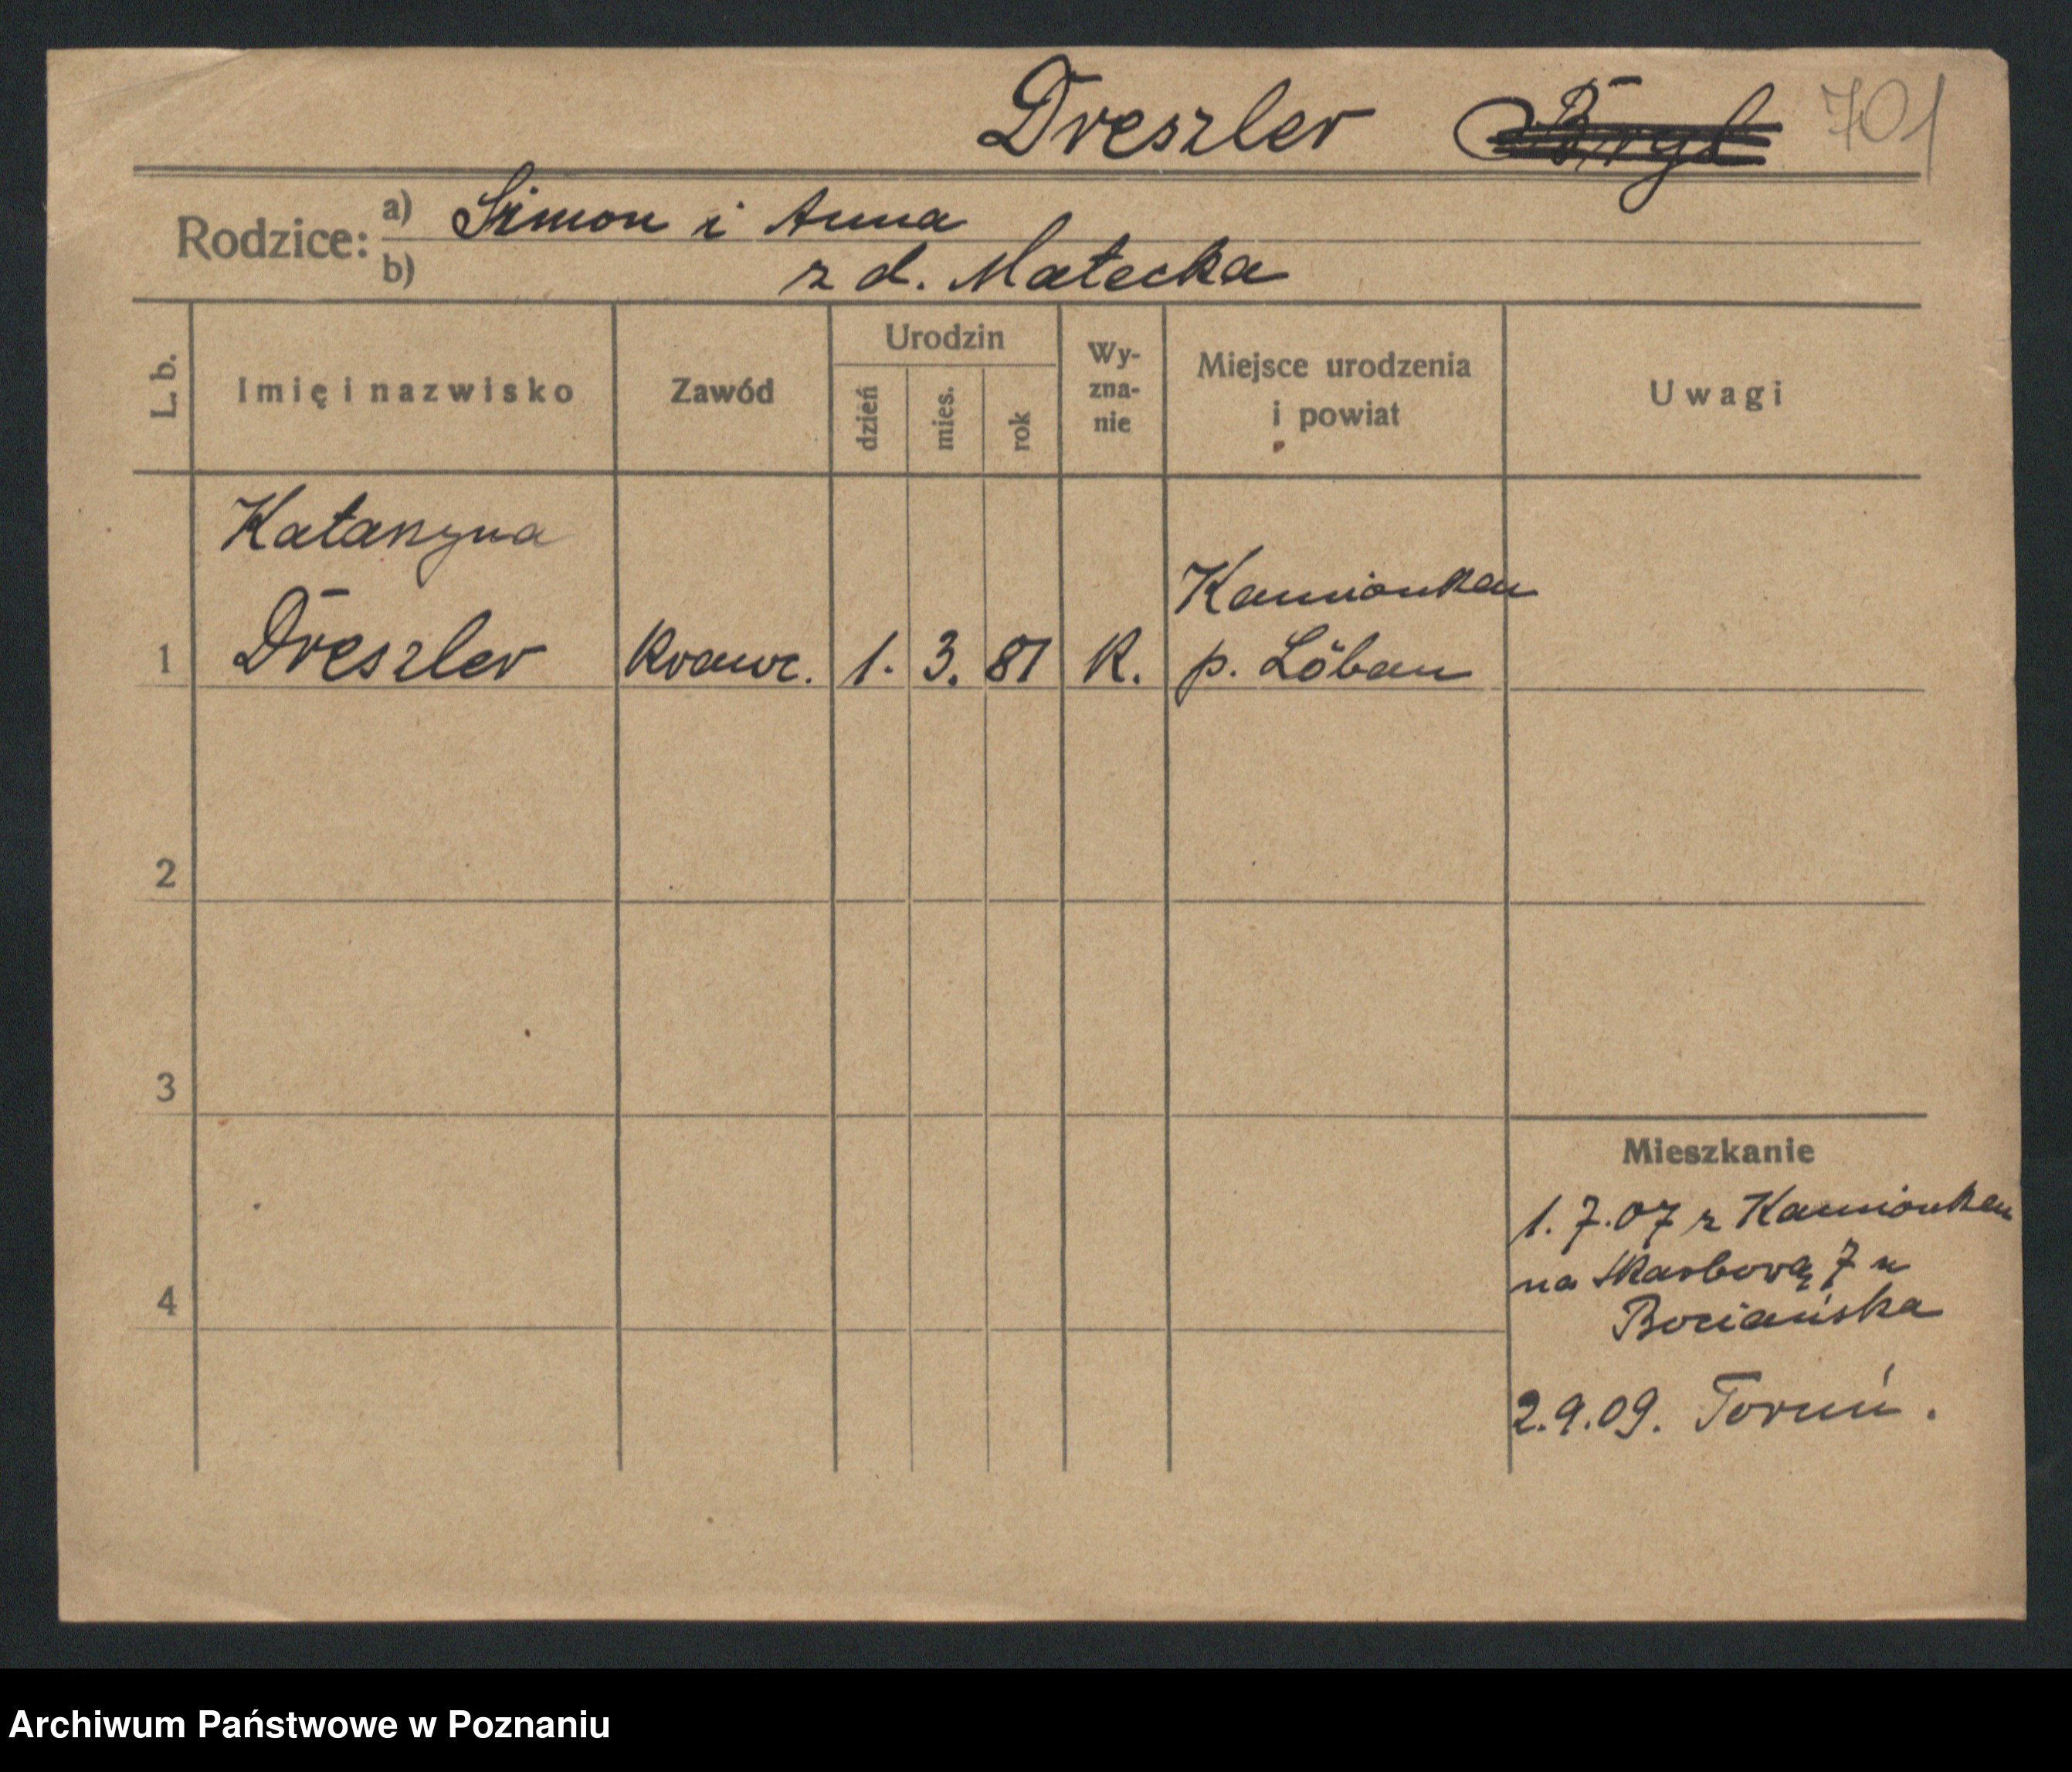 Dreszler 701
Rodzice: a) Szimon i Anna
b) z d. Matecka
L. b. Imię i nazwisko Zawód Urodzin dzień mies. rok Wy-zna-nie Miejsce urodzenia i powiat Uwagi
Katarzyna
Kamionken
1 Dreszler Krawc. 1. 3. 81 K. p. Löbau
2
3
Mieszkanie
1.7.07 z Kamionken
na Skarbową 7 u
4
Bociańska
2.9.09. Toruń.
Archiwum Państwowe w Poznaniu